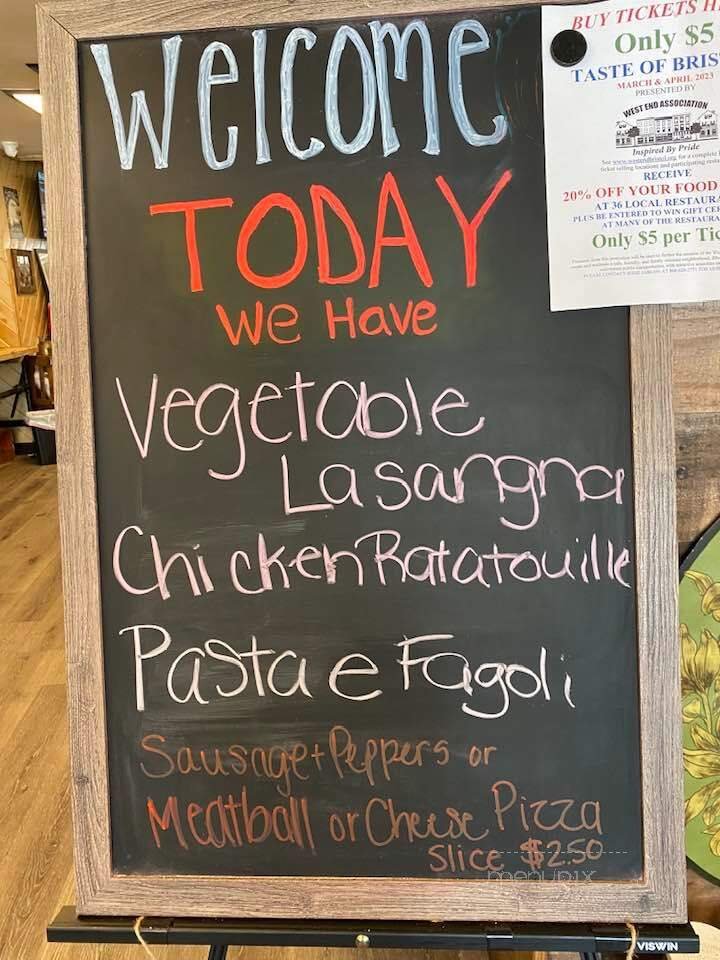 Welcome
TODAY
We Have
Vegetable
Lasangna
Chicken Ratatouille
Pasta e Fagoli
Sausage + Peppers or
Meatball or Cheese Pizza
Slice $2.50
menupix
VISWIN
BUY TICKETS
Only $5
TASTE OF
MARCH & APRIL 2023
PRESENTED BY
WEST END ASSOCIATION
Inspired By Pride
See www.westendbristol.org for a complete
ticket selling locations and participating
RECEIVE
20% OFF YOUR FOOD
AT 36 LOCAL
PLUS BE ENTERED TO WIN GIFT
AT MANY OF THE
Only $5 per